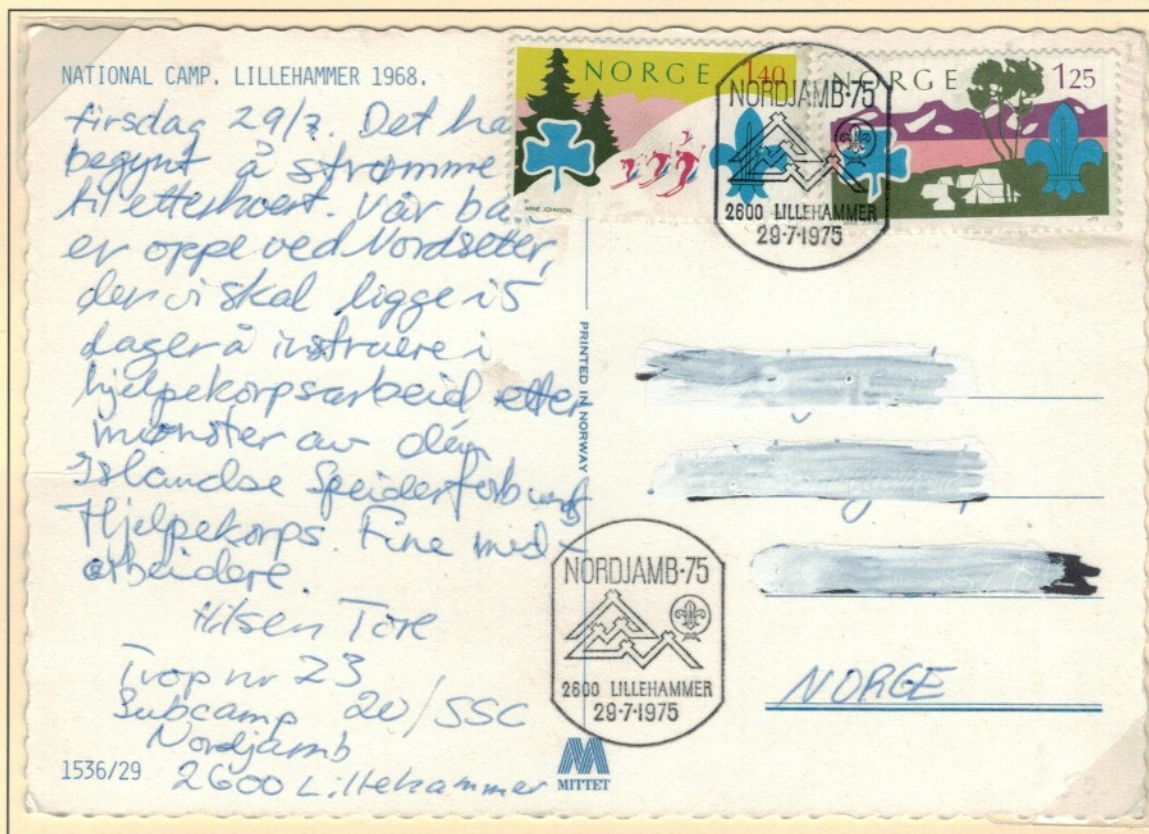 NATIONAL CAMP. LILLEHAMMER 1968.
Tirsdag 29/7. Det ha
begynt å strømme
til etterhvert. Vår ba
er oppe ved Nordseter,
der vi skal ligge i 5
dager å instruere i
hjelpekorpsarbeid etter
mønster av den
Islandse Speiderforbunds
Hjelpekorps. Fine med-
arbeidere.
Hilsen Tore
Trop nr 23
Subcamp 20/SSC
Nordjamb
2600 Lillehammer
1536/29
PRINTED IN NORWAY
MITTET
NORGE 140
ARNE JOHNSON
NORGE 125
NORDJAMB·75
2600 LILLEHAMMER
29·7·1975
NORDJAMB·75
2600 LILLEHAMMER
29·7·1975
NORGE